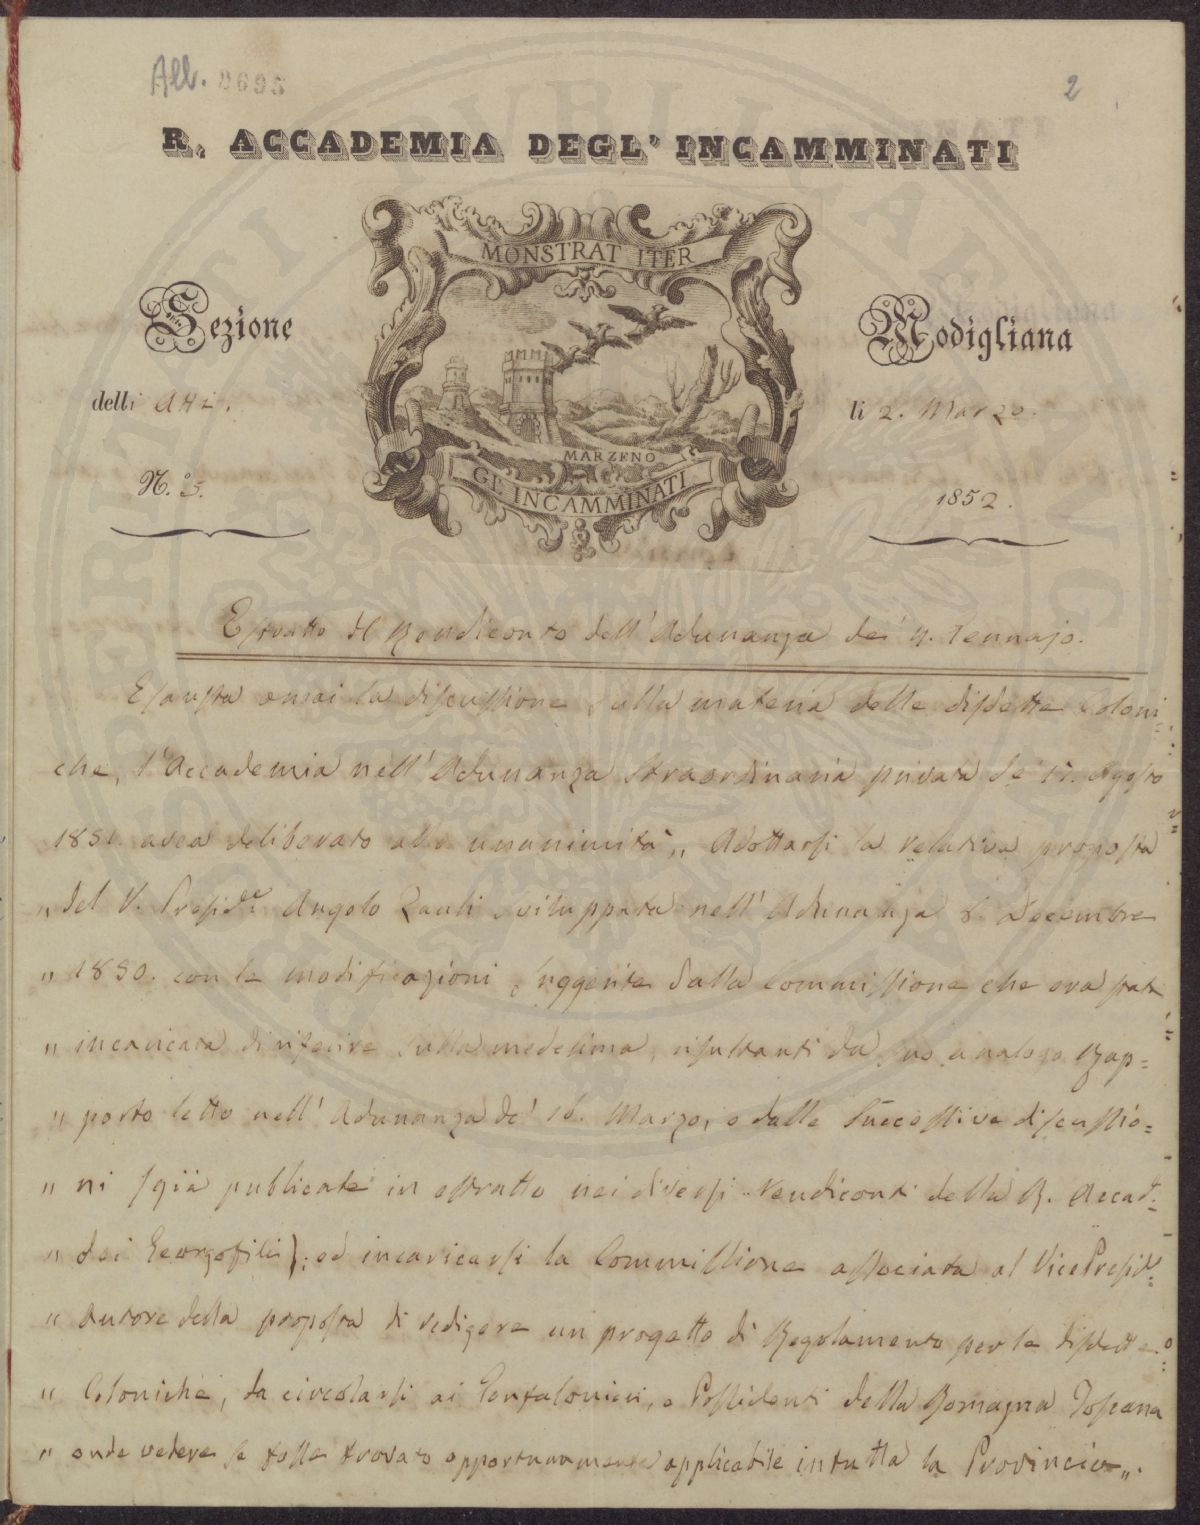 All. 0695
2
R. ACCADEMIA DEGL' INCAMMINATI
MONSTRAT ITER
Sezione
Modigliana
delli Atti.
li 2. Marzo.
MARZENO
N.° 5.
GE INCAMMINATI
1852.
Estratto del Rendiconto dell' Adunanza dei 4. Gennajo.
Esausta omai la discussione sulla materia delle disdette Coloni=
che, l'Accademia nell' Adunanza straordinaria privata de' 17. Agosto
1851. avea deliberato alla unanimità „ Adottarsi la relativa proposta
„ del V. Presid.e Angelo Zauli sviluppata nell' Adunanza 8. Decembre
„ 1850. con le modificazioni suggerite dalla Commissione che era stata
„ incaricata di riferire sulla medesima, risultanti da suo analogo Rap=
„ porto letto nell' Adunanza de' 16. Marzo, e dalle successive discussio=
„ ni (già publicate in estratto nei diversi rendiconti della R. Accad.
„ dei Georgofili); ed incaricarsi la Commissione associata al VicePresid.
„ Autore della proposta di redigere un progetto di Regolamento per le disdette
„ Coloniche, da circolarsi ai Gonfalonieri, e Possidenti della Romagna Toscana
„ onde vedere se fosse trovato opportunamente applicabile in tutta la Provincia „.